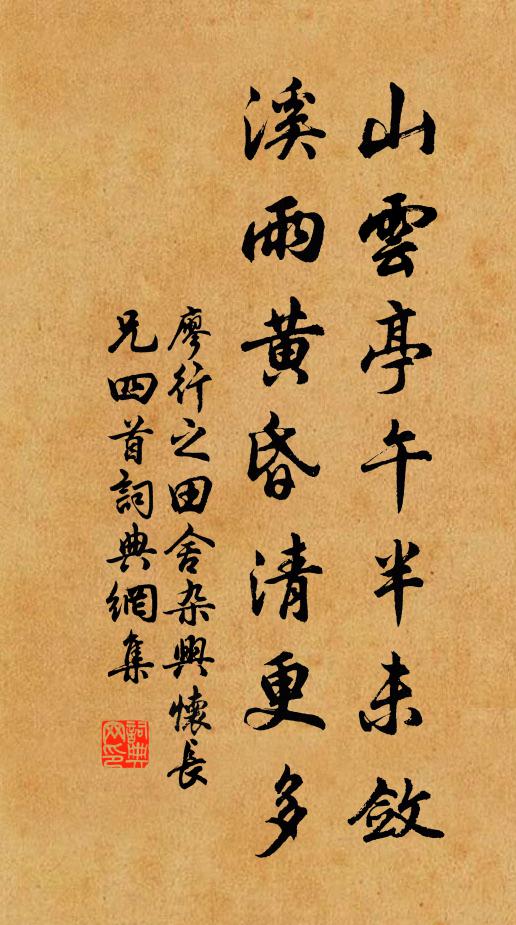 山雲亭午半未斂
溪雨黄昏清更多
廖行之田舍杂興懷長
兄四首詞典網集
詞典
网印